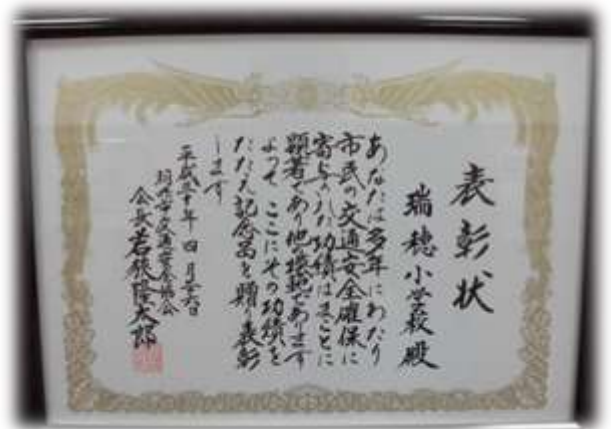 表彰状
瑞穂小学校殿
あなたは多年にわたり
市民の交通安全確保に
寄与された功績はまことに
顕著であり他の模範であります
よってここにその功績を
たたえ記念品を贈り表彰
します
平成三十年四月廿六日
市交通安全協会
会長
隆太郎